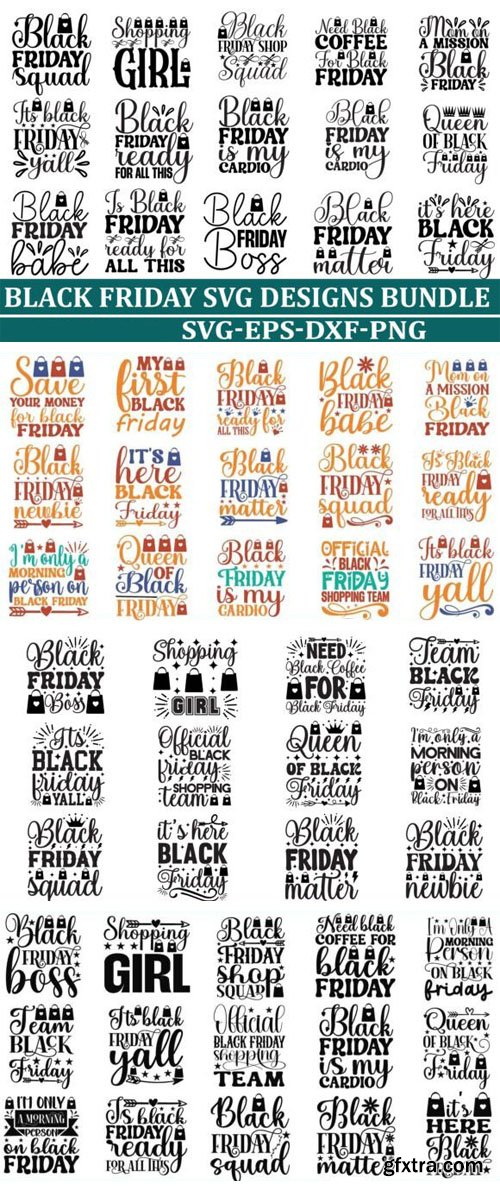 Black
FRIDAY
Squad
Shopping
GIRL
Black
FRIDAY SHOP
Squad
Need Black
COFFEE
For Black
FRIDAY
Mom on
A MISSION
Black
FRIDAY
Its black
FRIDAY
y'all
Black
FRIDAY
ready
FOR ALL THIS
Black
FRIDAY
is my
CARDIO
Black
FRIDAY
is my
CARDIO
Queen
OF BLACK
Friday
Black
FRIDAY
babe
Is Black
FRIDAY
ready for
ALL THIS
Black
FRIDAY
Boss
Black
FRIDAY
matter
it's here
BLACK
Friday
BLACK FRIDAY SVG DESIGNS BUNDLE
SVG-EPS-DXF-PNG
Save
YOUR MONEY
for black
FRIDAY
MY
first
BLACK
friday
Black
FRIDAY
ready for
ALL THIS
Black
FRIDAY
babe
Mom on
A MISSION
Black
FRIDAY
Black
FRIDAY
newbie
IT'S
here
BLACK
Friday
Black
FRIDAY
matter
Black
FRIDAY
squad
Is Black
FRIDAY
ready
FOR ALL THIS
I'm only a
MORNING
person on
BLACK FRIDAY
Queen
OF
Black
FRIDAY
Black
FRIDAY
is my
CARDIO
OFFICIAL
BLACK
FRIDAY
SHOPPING TEAM
Its black
FRIDAY
yall
Black
FRIDAY
Boss
Shopping
GIRL
NEED
Black Coffee
FOR
Black Friday
Team
BLACK
Friday
It's
BLACK
friday
YALL
Official
BLACK
friday
SHOPPING
team
Queen
OF BLACK
Friday
I'm only a
MORNING
person
ON
Black Friday
Black
FRIDAY
squad
it's here
BLACK
Friday
Black
FRIDAY
matter
Black
FRIDAY
newbie
Black
FRIDAY
boss
Shopping
GIRL
Black
FRIDAY
shop
SQUAD
Need black
COFFEE FOR
black
FRIDAY
I'm Only A
MORNING
Person
ON BLACK
friday
Team
BLACK
Friday
Its black
FRIDAY
yall
Official
BLACK FRIDAY
shopping
TEAM
Black
FRIDAY
IS MY
CARDIO
Queen
OF BLACK
Friday
I'M ONLY
A MORNING
PERSON
on black
FRIDAY
Is black
FRIDAY
ready
FOR ALL THIS
Black
FRIDAY
squad
Black
FRIDAY
matter
it's
HERE
Black
FRIDAY
gfxtra.com